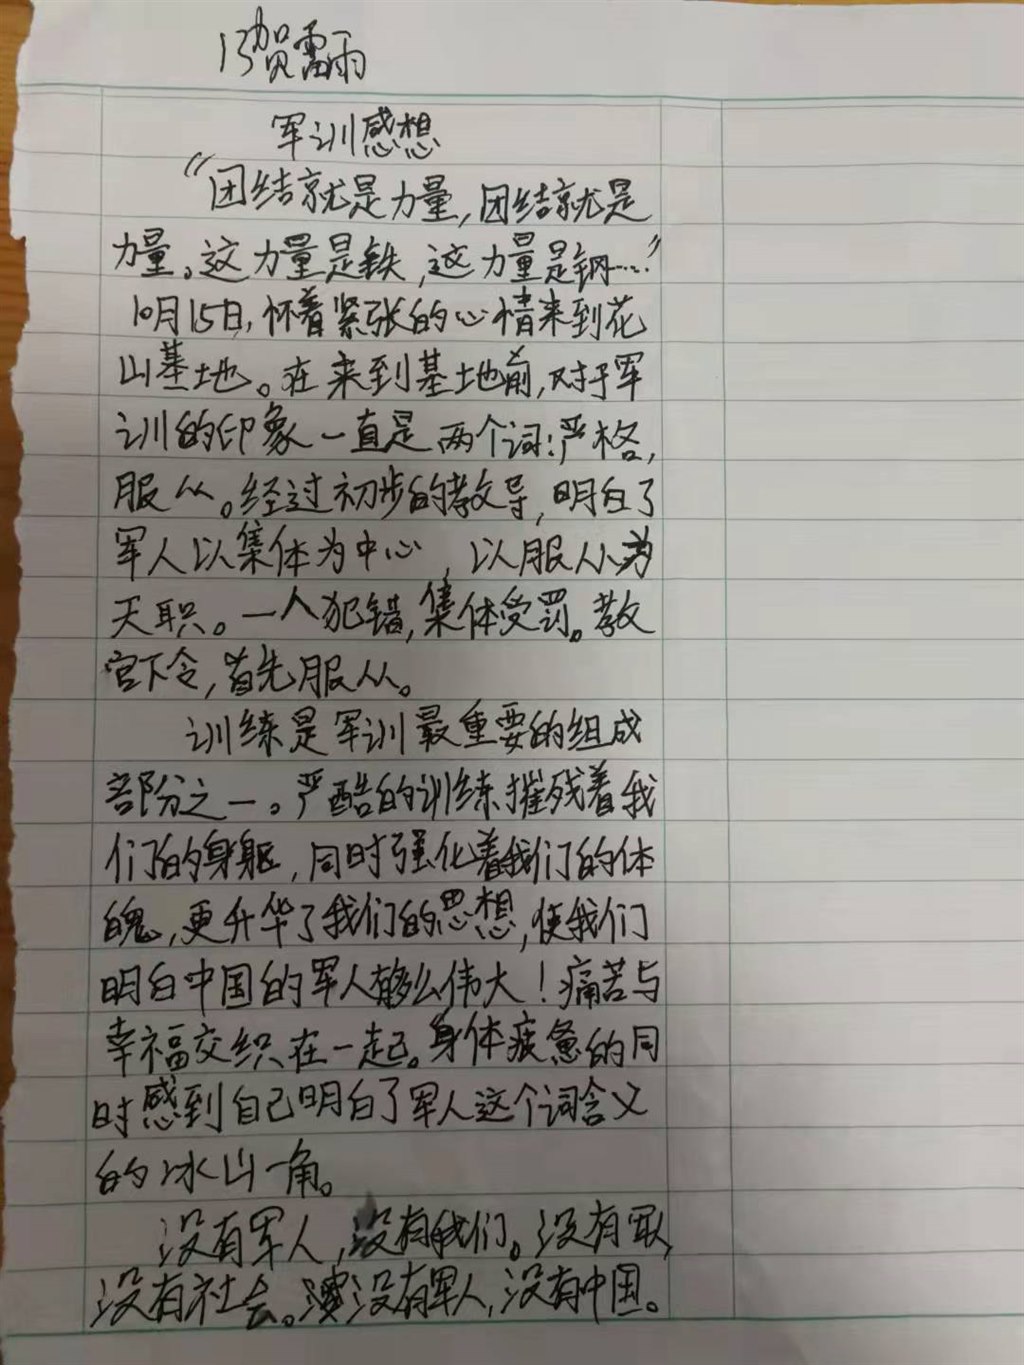 13贺雷雨
军训感想
“团结就是力量,团结就是
力量。这力量是铁,这力量是钢……”
10月15日,怀着紧张的心情来到花
山基地。在来到基地前,对于军
训的印象一直是两个词:严格,
服从。经过初步的教导,明白了
军人以集体为中心,以服从为
天职。一人犯错,集体受罚。教
官下令,首先服从。
训练是军训最重要的组成
部分之一。严酷的训练摧残着我
们的身躯,同时强化着我们的体
魄,更升华了我们的思想,使我们
明白中国的军人够么伟大!痛苦与
幸福交织在一起。身体疲惫的同
时感到自己明白了军人这个词含义
的冰山一角。
没有军人,没有我们。没有军队,
没有社会。没有军人,没有中国。